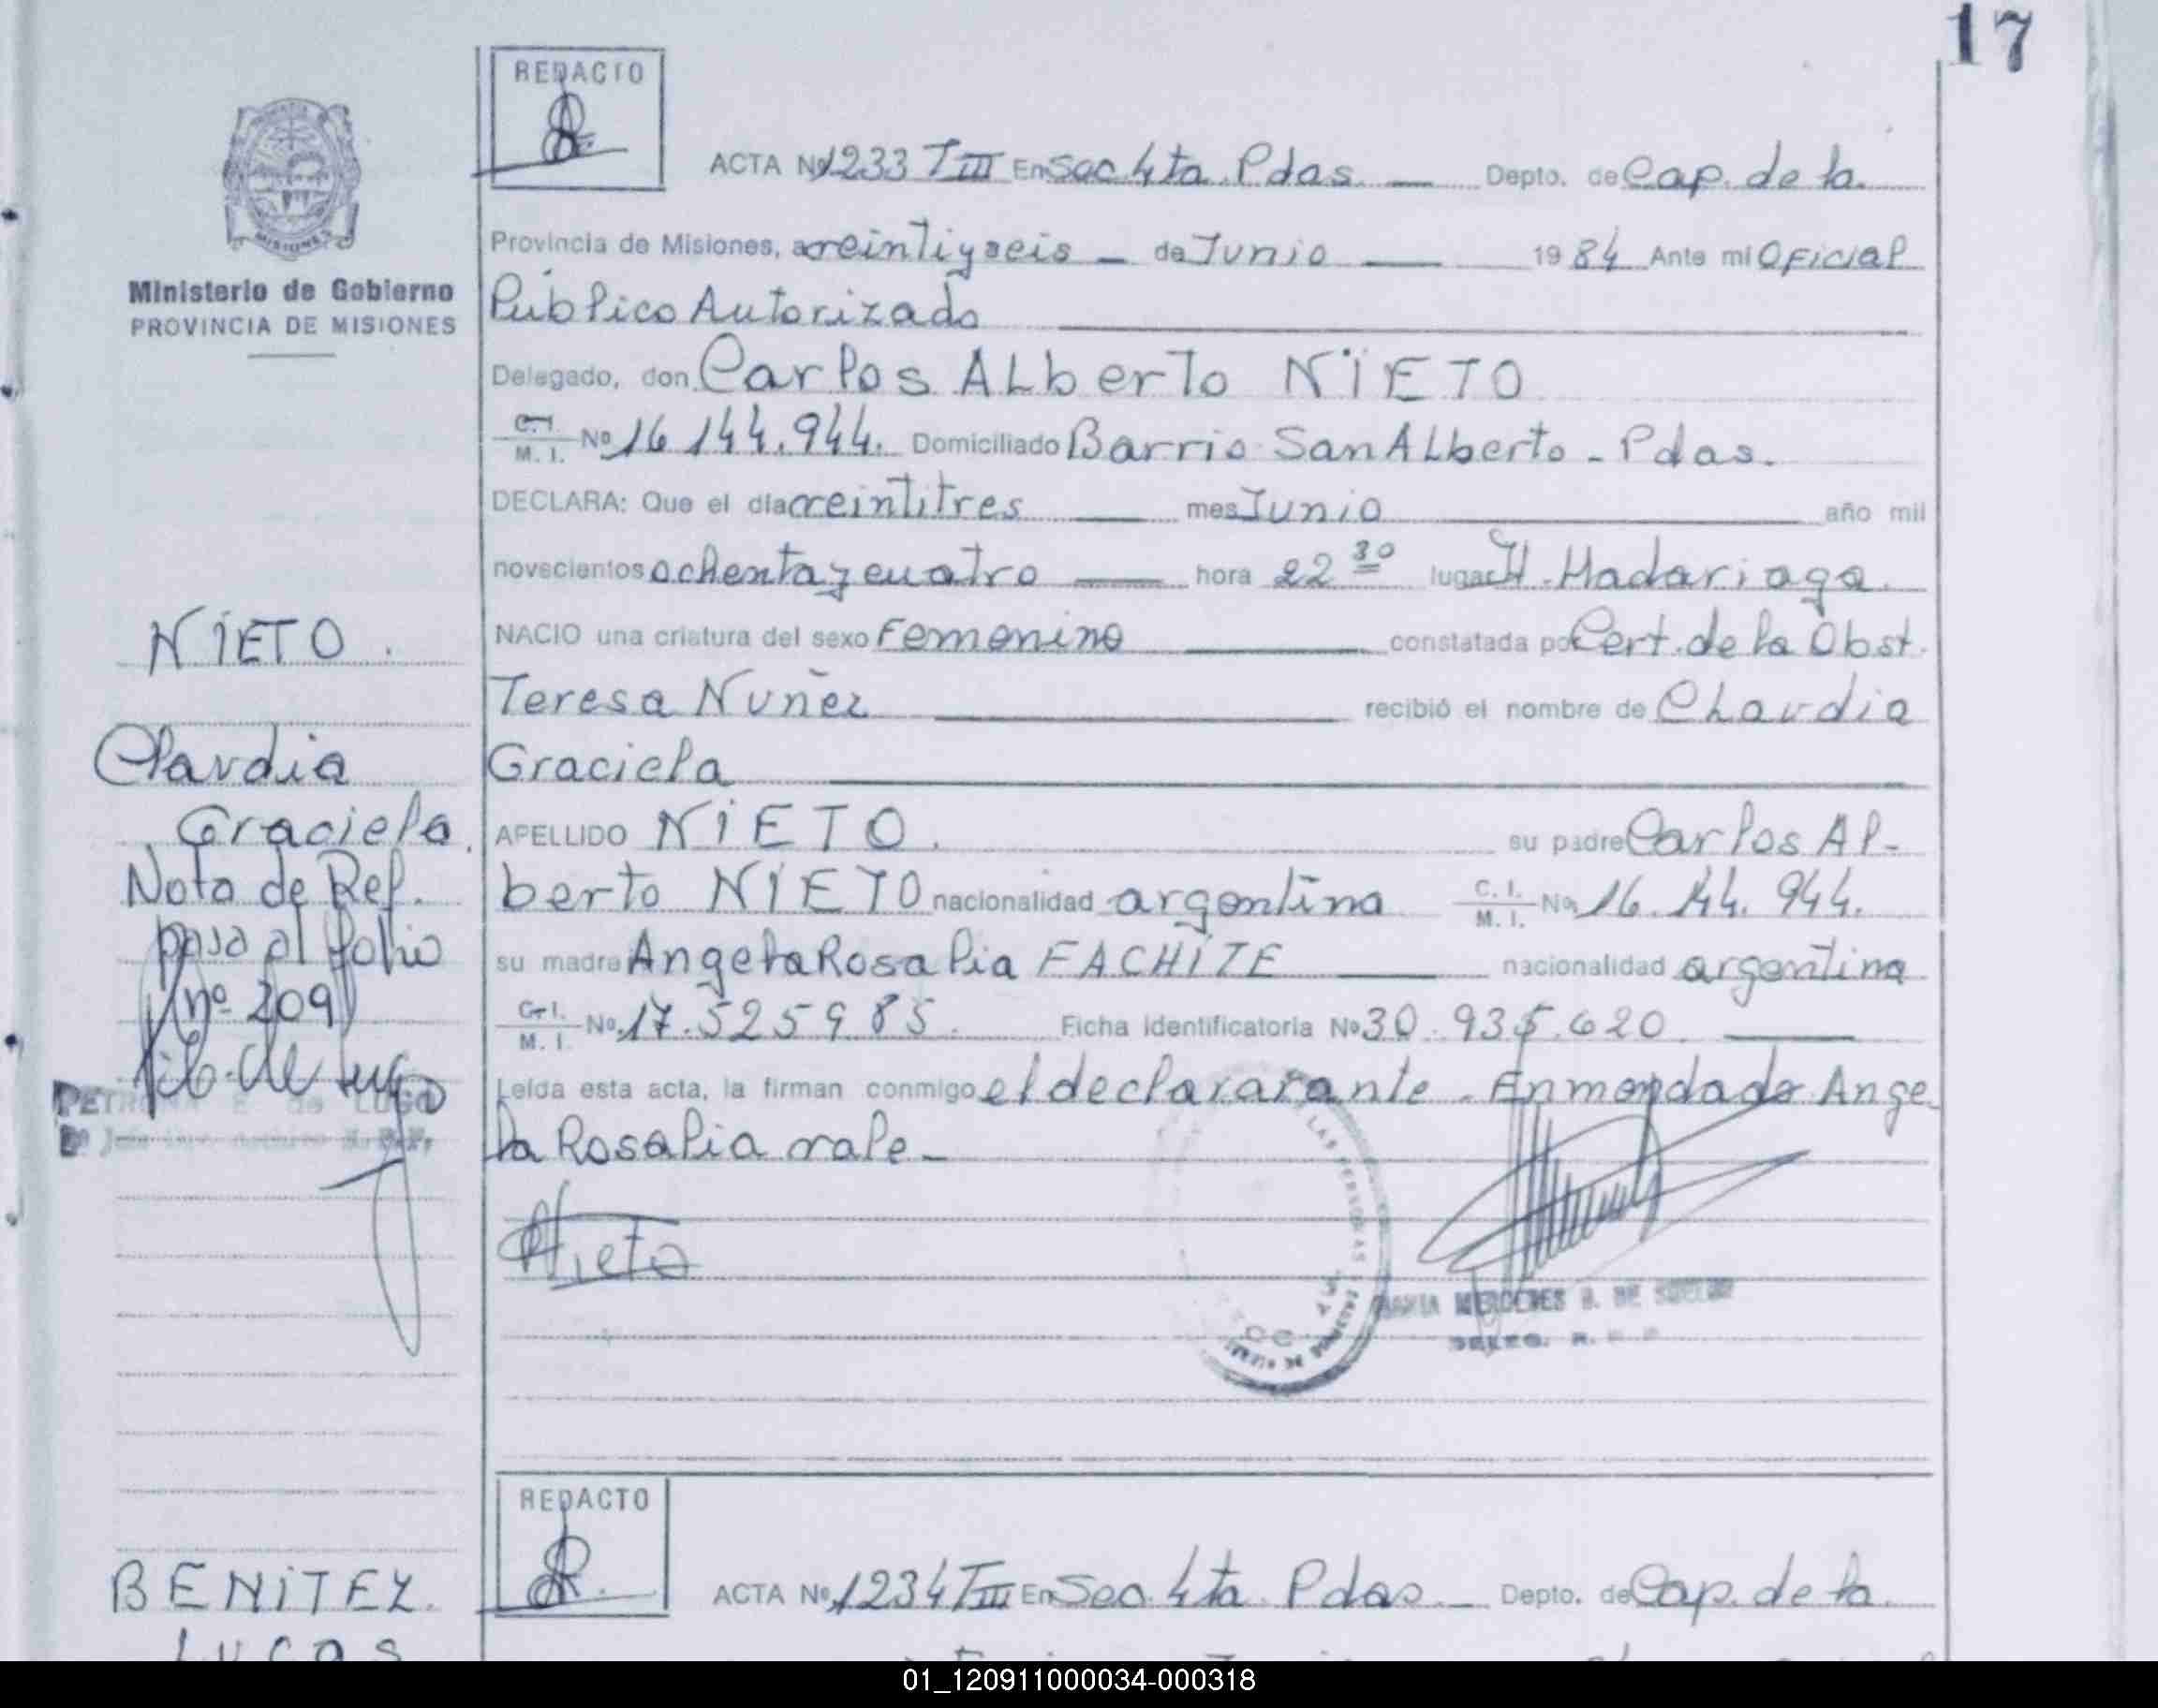 17
REDACTO
ACTA Nº 1233 T III En Sec 4ta. Pdas. Depto. de Cap. de la
Provincia de Misiones, a veintiyseis de Junio 1984 Ante mi Oficial
Público Autorizado
Ministerio de Gobierno
PROVINCIA DE MISIONES
Delegado, don Carlos ALberto NIETO
C.I. M.I. Nº 16 144.944. Domiciliado Barrio San ALberto - Pdas.
DECLARA: Que el día veintitres mes Junio año mil
novecientos ochenta y cuatro hora 22 30 lugar H. Madariaga.
NACIO una criatura del sexo Femenino constatada por Cert. de la Obst.
Teresa Nuñez recibió el nombre de CLaudia
Graciela
APELLIDO NIETO. su padre Carlos Al-
berto NIETO nacionalidad argentina C.I. M.I. Nº 16.144.944.
su madre Angela Rosalia FACHITE nacionalidad argentina
C.I. M.I. Nº 17.525985. Ficha Identificatoria Nº 30.935.620.
Leída esta acta, la firman conmigo el declararante. Enmendado Ange
la Rosalia vale -
NIETO.
Claudia
Graciela.
Nota de Ref.
pasa al folio
nº 209
PETRONA E de LUGO
Nieto
MARIA MERCEDES B. DE
DELEG. R.
REDACTO
ACTA Nº 1234 T III En Sec. 4ta. Pdas. Depto. de Cap. de la
BENITEZ.
LUCAS
01_120911000034-000318